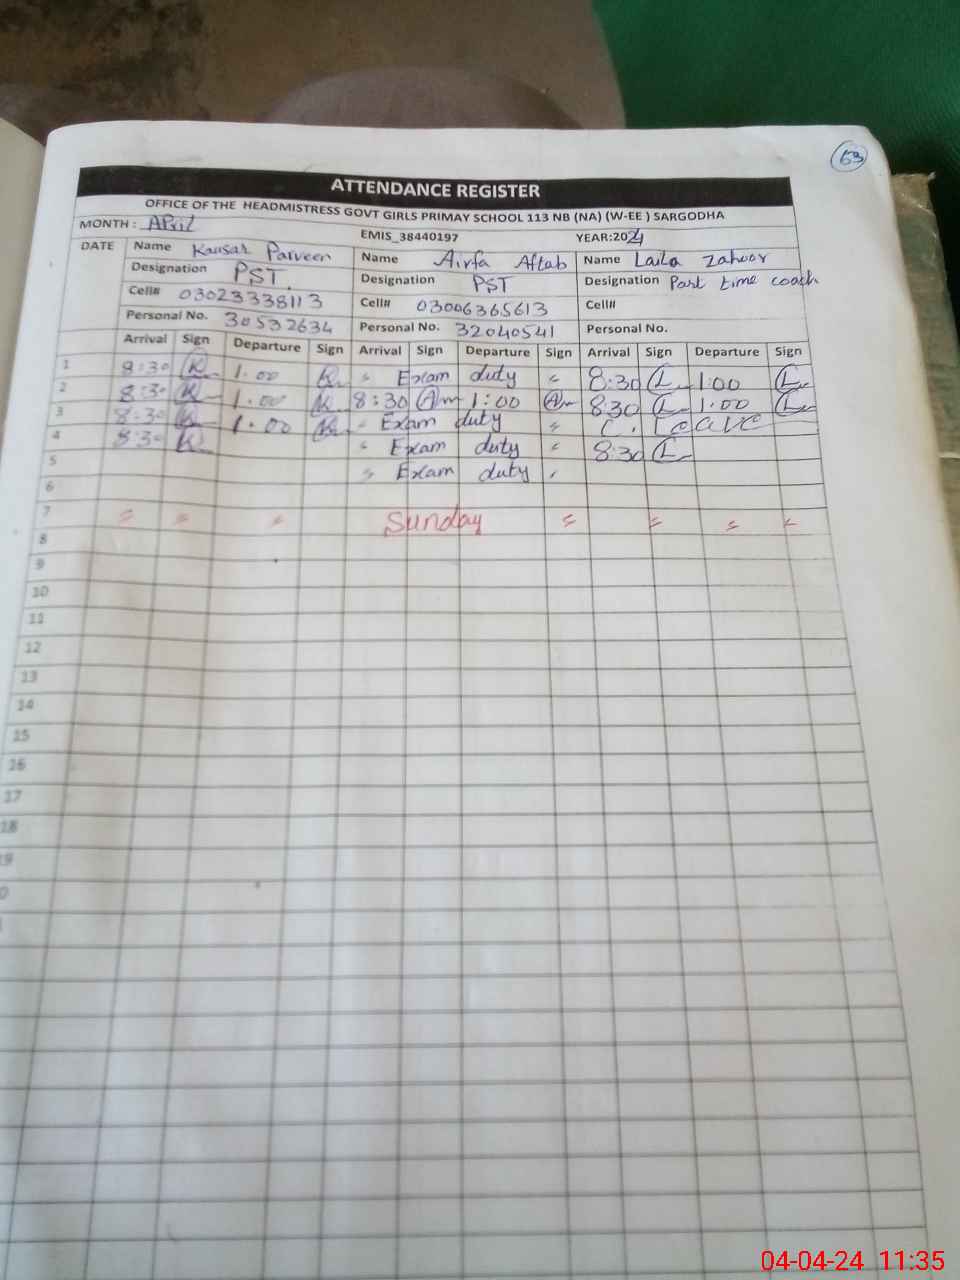 63
ATTENDANCE REGISTER
OFFICE OF THE HEADMISTRESS GOVT GIRLS PRIMAY SCHOOL 113 NB (NA) (W-EE ) SARGODHA
MONTH : April EMIS_38440197 YEAR:2024
DATE Name Kausar Parveen Name Airfa Aftab Name Laila Zahoor
Designation PST Designation PST Designation Part time coach
Cell# 03023338113 Cell# 03006365613 Cell#
Personal No. 30532634 Personal No. 32040541 Personal No.
Arrival Sign Departure Sign Arrival Sign Departure Sign Arrival Sign Departure Sign
1 8:30 K 1.00 K " Exam duty " 8:30 L 1:00 L
2 8:30 K 1.00 K 8:30 Am 1:00 Am 8:30 L 1:00 L
3 8:30 K 1.00 K " Exam duty " C. Leave
4 8:30 K " Exam duty " 8:30 L
5 " Exam duty "
6
7 " " " Sunday " " " "
8
9
10
11
12
13
14
15
16
17
18
19
04-04-24 11:35